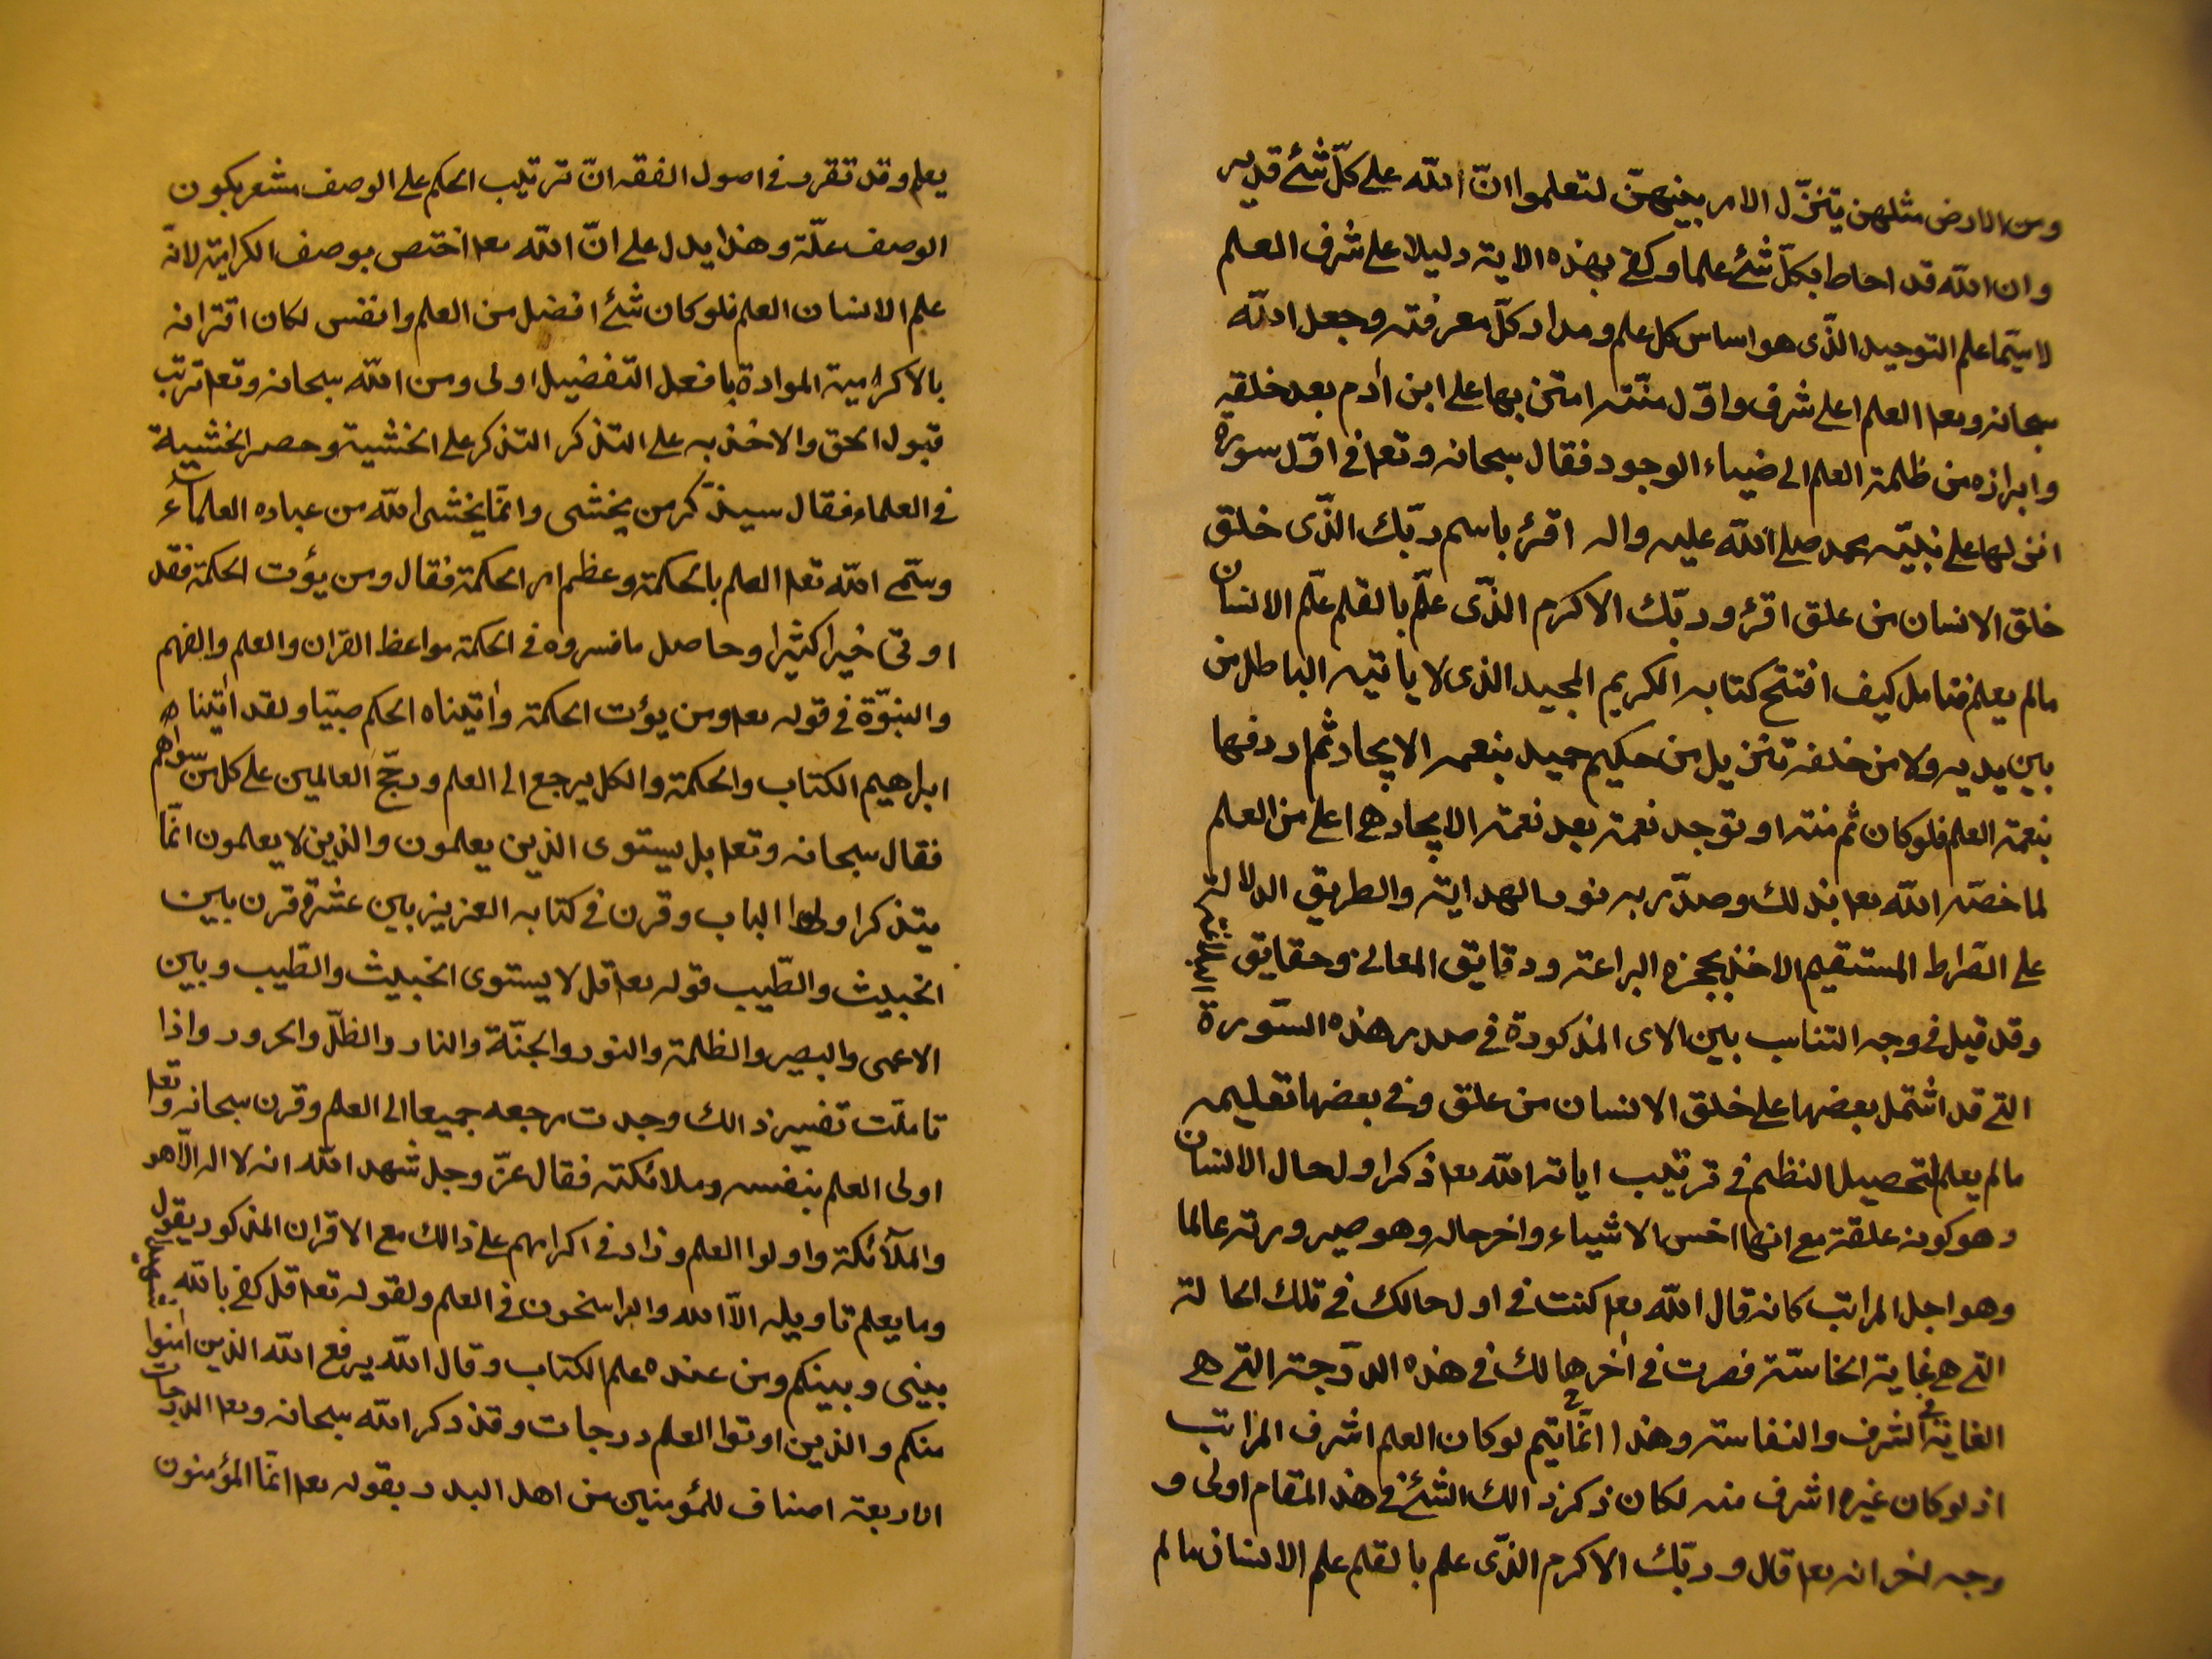 ومن الارض مثلهن يتنزّل الامر بينهنّ لتعلموا انّ الله على كلّ شئ قدير
وان الله قد احاط بكلّ شئ علما وكفى بهذه الاية دليلا على شرف العلم
لاسيّما علم التوحيد الذّى هو اساس كل علم ومدار كلّ معرفته وجعل الله
سبحانه وتعا العلم اعلى شرف واوّل منّته امتن بها على ابن اٰدم بعد خلقه
وابرازه من ظلمة العلم الى ضياء الوجود فقال سبحانه وتعا فى اوّل سورة
انزلها على نبيّه محمد صلى الله عليه واله اقرئ باسم ربّك الذّى خلق
خلق الانسان من علق اقرئ وربّك الاكرم الذّى علّم بالقلم علّم الانسان
مالم يعلم فتامل كيف افتتح كتابه الكريم المجيد الذى لا ياتيه الباطل من
بين يديه ولا من خلفه تنزيل من حكيم حميد بنعمه الايجاد ثم اردفها
بنعمة العلم فلو كان ثم منته او توجد نعمة بعد نعمة الايجاد هى اعلى من العلم
لما خصّه الله تعا بذلك وصدّر به نور الهداية والطريق الدلالة
على الصّراط المستقيم الاخذ بحجزه البراعته ودقايق المعانى وحقايق البلاغة
وقد قيل فى وجه التناسب بين الاى المذكورة فى صدر هذه السّورة
التى قد اشتمل بعضها على خلق الانسان من علق وفى بعضها تعليمه
مالم يعلم لتحصيل النظم فى ترتيب اياته الله تعا ذكر اول حال الانسان
وهو كونه علقة مع انها اخس الاشياء واخر حاله وهو صيرورته عالما
وهو اجل المراتب كانه قال الله تعا كنت فى اول حالك فى تلك الحالة
التى هى غاية الخاسّة فصرت فى اٰخرها لك فى هذه الدّرجته التى هى
الغاية فى الشرف والنفاسته وهذا انّما يتم لو كان العلم اشرف المراتب
اذ لو كان غيره اشرف منه لكان ذكر ذالك الشئ فى هذ المقام اولى و
وجه اخر انه تعا قال وربّك الاكرم الذّى علم بالقلم علم الانسان مالم
يعلم وقد تقرر فى اصول الفقه انّ ترتيب الحكم على الوصف مشعر بكون
الوصف علّة وهذا يدل على انّ الله تعا اختص بوصف الكرامية لانّه
علم الانسان العلم فلو كان شئ افضل من العلم وانفس لكان اقترانه
بالاكرامية الموادة بافعل التفضيل اولى ومن الله سبحانه وتعا ترتب
قبول الحق والاخذ به على التذكر التذكر على الخشية وحصر الخشية
فى العلماء فقال سيذّكر من يخشى وانّما يخشى الله من عباده العلماء
وسمّى الله تعا العلم بالحكمة وعظم امر الحكمة فقال ومن يؤت الحكمة فقد
اوتى خيرا كثيرا وحاصل ما فسروه فى الحكمة مواعظ القران والعلم والفهم
والنبّوة فى قوله تعا ومن يؤت الحكمة واتيناه الحكم صبيّا ولقد اٰتينا
ابراهيم الكتاب والحكمة والكل يرجع الى العلم ورجّح العالمين على كل من سواهم
فقال سبحانه وتعا بل يستوى الذين يعلمون والذين لا يعلمون انّما
يتذكر اولوا الباب وقرن فى كتابه العزيز بين عشرة قرن بين
الخبيث والطّيب قوله تعا قل لا يستوى الخبيث والطّيب وبين
الاعمى والبصير والظلمة والنور والجنّة والنار والظلّ والحرور واذا
تاملّت تفسير ذالك وجدت مرجعه جميعا الى العلم وقرن سبحانه وتعا
اولى العلم بنفسه وملائكته فقال عزّ وجل شهد الله انه لا اله الّا هو
والملآئكة واولوا العلم وزاد فى اكرامهم على ذالك مع الاقران المذكور بقول
وما يعلم تاويله الّا الله والراسخون فى العلم ولقوله تعا قل كفى بالله
بينى وبينكم ومن عنده علم الكتاب وقال الله يرفع الله الذين امنوا
منكم والذين اوتوا العلم درجات وقد ذكر الله سبحانه وتعا الدرجات
لاربعة اصناف للمؤمنين من اهل البدر بقوله تعا انّما المؤمنون